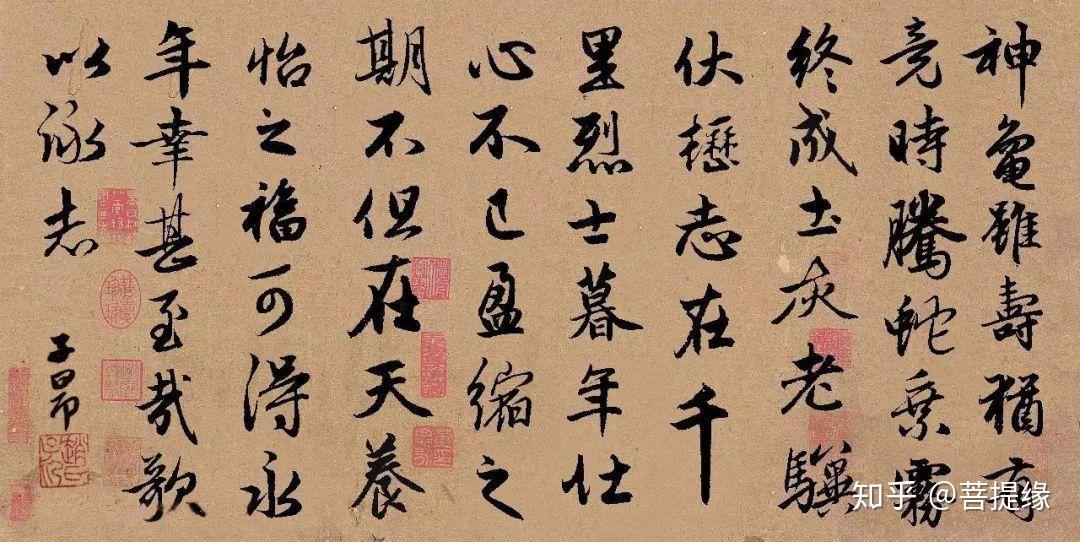 神龜雖壽猶有
竟時騰蛇乘霧
終成土灰老驥
伏櫪志在千
里烈士暮年壮
心不已盈縮之
期不但在天養
怡之福可得永
年幸甚至哉歌
以詠志
子昂
知乎 @菩提缘